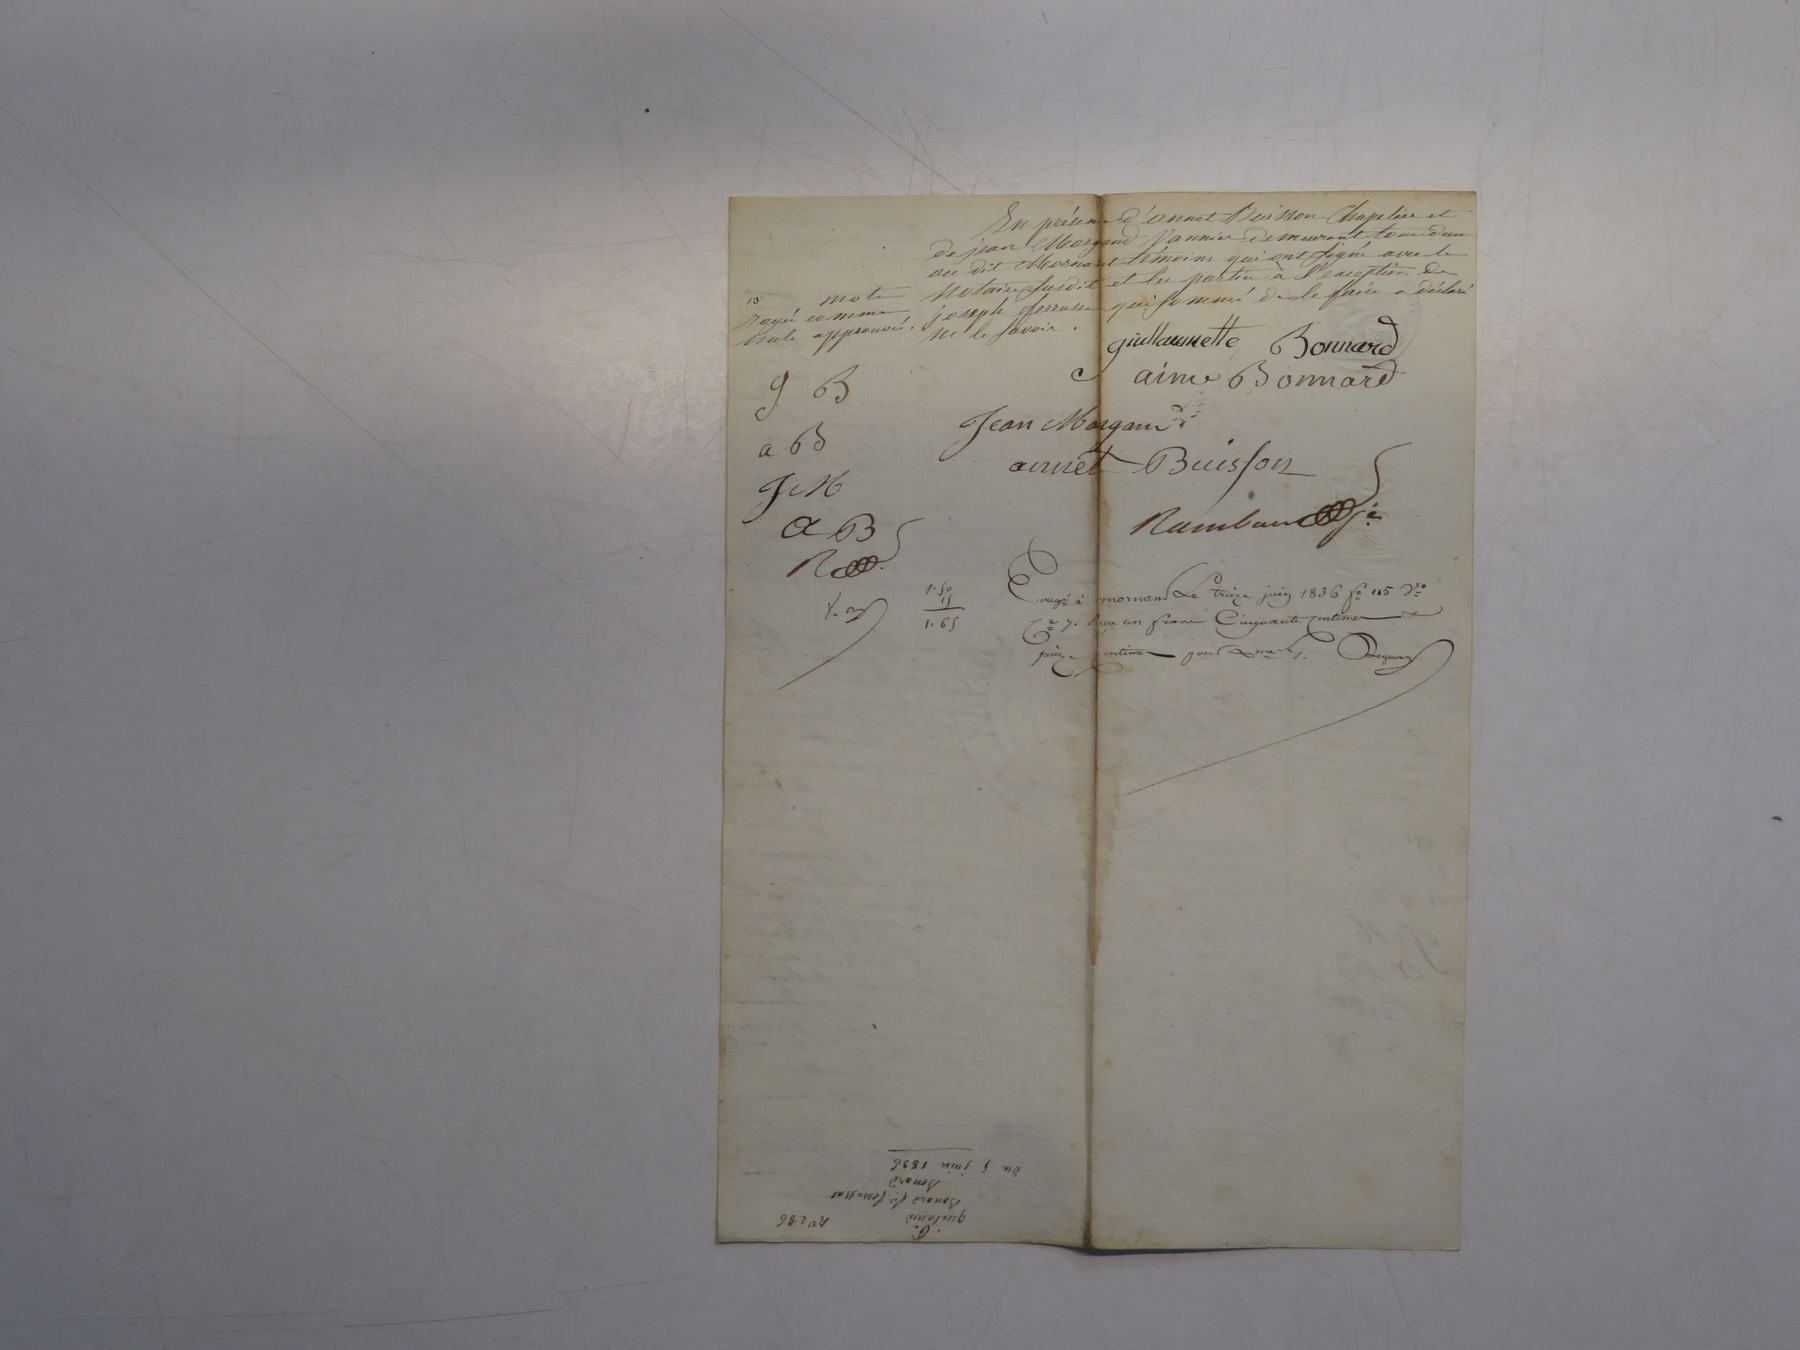 En présence d'annet Buisson Chapelier et
de jean Morgand Vannier demeurant tous deux
au dit Mornant témoins qui ont signé avec le
Notaire susdit et les parties à l'exception de
joseph ferrassa qui sommé de le faire a déclaré
ne le savoir.
13 mots
rayés comme
nuls approuvés.
guillaumette Bonnard
aime Bonnard
Jean Morgand
annet Buisson
Rambaud
g B
a B
J M
a B
R
1.50
15
1.65
Enregé à mornant Le treize juin 1836 fo 115 Vo
Ce 7. Reçu un franc Cinquante centimes et
quinze centimes pour
No 286
quitance
Bonard
Bonard
du 5 juin 1836